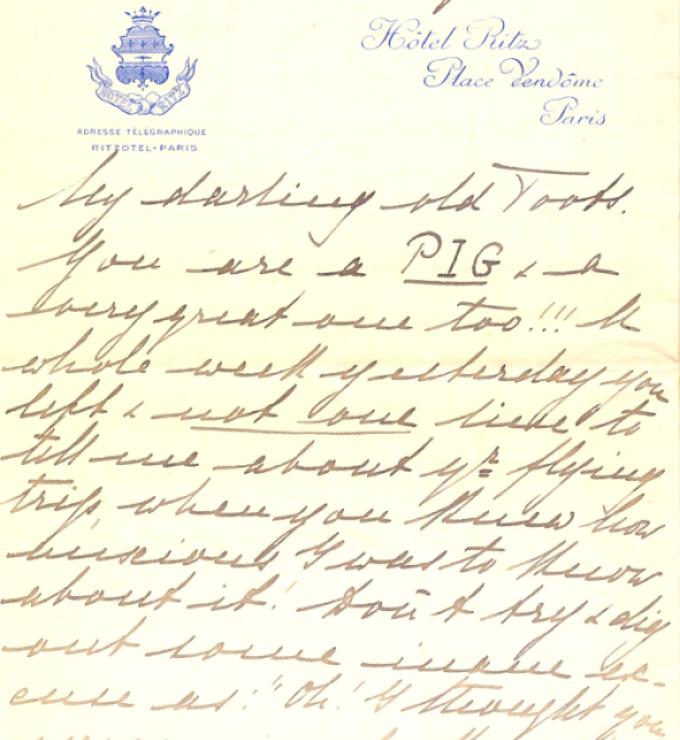 HOTEL RITZ
ADRESSE TÉLÉGRAPHIQUE
RITZOTEL-PARIS
Hôtel Ritz
Place Vendôme
Paris
My darling old Toots.
You are a PIG & a
very great one too!!! A
whole week yesterday you
left & not one line to
tell me about yr flying
trip, when you knew how
anxious I was to know
about it! Don't try & dig
out some inane ex-
cuse as: "Oh! I thought you